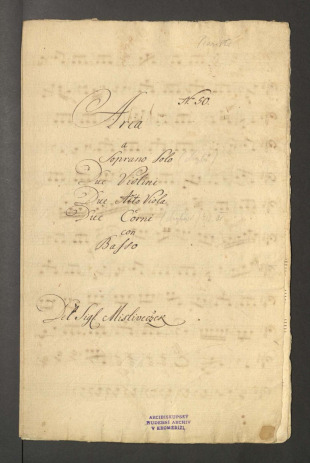 No. 50.
Area
a
Soprano Solo
Due Violini
Due Alto Viola
Due Corni
con
Basso
Del Sigl. Misliveczek
ARCIBISKUPSKÝ
HUDEBNÍ ARCHIV
V KROMĚŘÍŽI